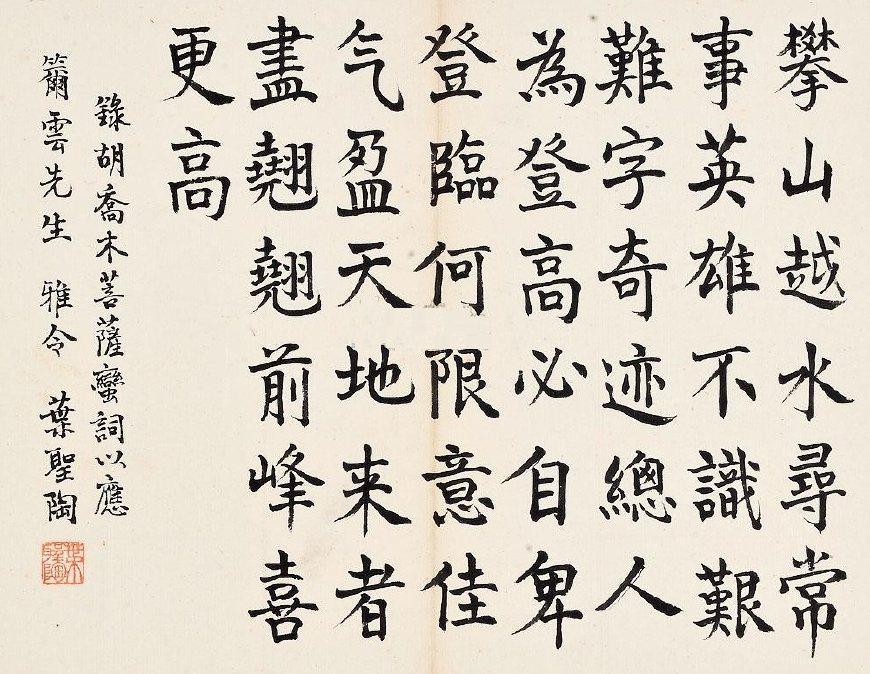 攀山越水尋常
事英雄不識艱
難字奇迹總人
為登高必自卑
登臨何限意佳
气盈天地来者
盡翹翹前峰喜
更高
錄胡喬木菩薩蠻詞以應
籋雲先生 雅令 葉聖陶
葉聖陶